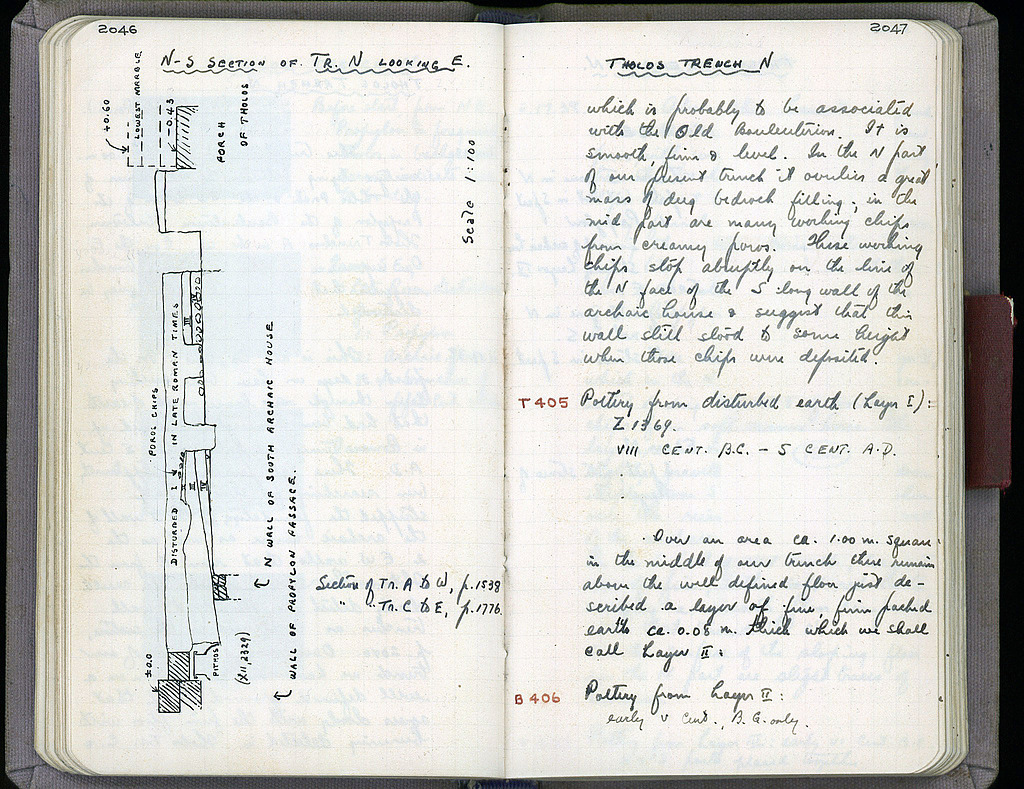 2046
N-S SECTION OF TR. N LOOKING E.
+0.60
LOWEST MARBLE
-0.43
PORCH
OF THOLOS
Scale 1:100
POROS CHIPS
DISTURBED IN LATE ROMAN TIMES
I
II
III
IV
III
N WALL OF SOUTH ARCHAIC HOUSE
WALL OF PROPYLON PASSAGE.
Section of Tr. A to W, p. 1538
" " Tr. C to E, p. 1776.
±0.0
PITHOS
(XII, 2329)
2047
THOLOS TRENCH N
which is probably to be associated
with the Old Bouleuterion. It is
smooth, firm & level. In the N part
of our present trench it overlies a great
mass of dug bedrock filling; in the
mid part are many working chips
from creamy poros. These working
chips stop abruptly on the line of
the N face of the S long wall of the
archaic house & suggest that this
wall still stood to some height
when those chips were deposited.
T 405 Pottery from disturbed earth (Layer I):
Z 1369.
VIII CENT. B.C. – 5 CENT. A.D.
Over an area ca. 1.00 m. square
in the middle of our trench there remains
above the well defined floor just de-
scribed a layer of fine, firm packed
earth ca. 0.08 m. thick which we shall
call Layer II:
B 406 Pottery from Layer II:
early V Cent. B.C. only.